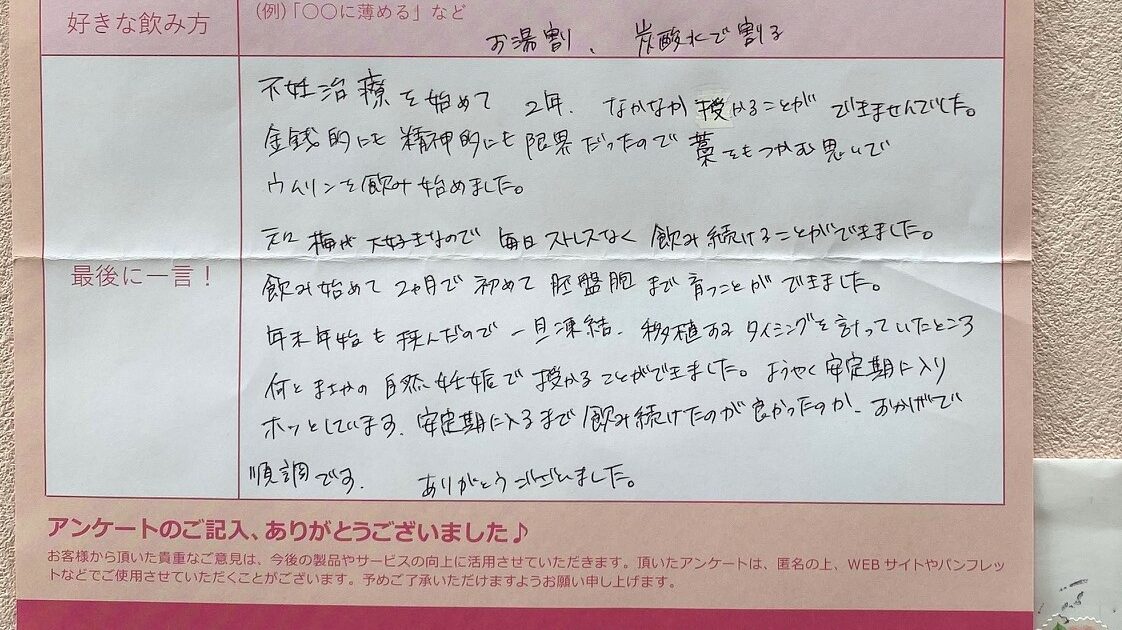 好きな飲み方
(例)「〇〇に薄める」など
お湯割、 炭酸水で割る
最後に一言！
不妊治療を始めて 2年. なかなか授かることが できませんでした。
金銭的にも 精神的にも 限界だったので 藁をもつかむ思いで
ウムリンを飲み始めました。
元々 梅が大好きなので 毎日ストレスなく 飲み続けることができました。
飲み始めて 2ヶ月で 初めて 胚盤胞 まで 育つことが できました。
年末年始も挟んだので 一旦凍結. 移植する タイミングを計っていたところ
何と まさかの 自然妊娠で 授かる ことができました。 ようやく 安定期に入り
ホッとしています. 安定期に入るまで 飲み続けたのが 良かったのか. おかげで
順調です. ありがとうございました。
アンケートのご記入、ありがとうございました♪
お客様から頂いた貴重なご意見は、今後の製品やサービスの向上に活用させていただきます。頂いたアンケートは、匿名の上、WEB サイトやパンフレッ
トなどでご使用させていただくことがございます。予めご了承いただけますようお願い申し上げます。